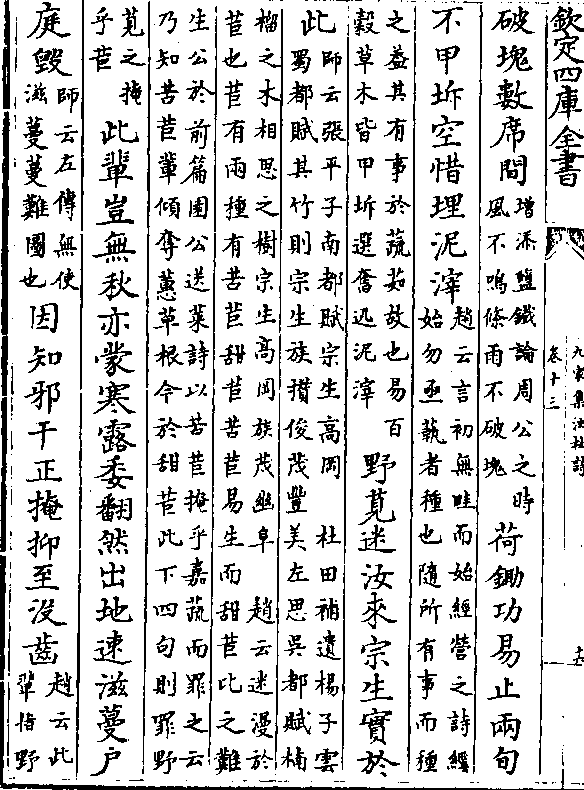 欽定四庫全書
九家集注杜詩
卷十三
十六
破塊數席間
增添鹽鐵論周公之時
風不鳴條雨不破塊
荷鋤功易止兩旬
不甲坼空惜埋泥滓
趙云言初無畦而始經營之詩經
始勿亟蓺者種也隨所有事而種
之蓋其有事於蔬茹故也易百
穀草木皆甲坼選奮迅泥滓
野莧迷汝來宗生實於
此
師云張平子南都賦宗生高岡 杜田補遺楊子雲
蜀都賦其竹則宗生族攅俊茂豐美左思吳都賦楠
榴之木相思之樹宗生高岡族茂幽阜 趙云迷漫於
苣也苣有兩種有苦苣甜苣苦苣易生而甜苣此之難
生公於前篇園公送菜詩以苦苣掩乎嘉蔬而罪之云
乃知苦苣輩傾奪蕙草根今於甜苣此下四句則罪野
莧之掩
乎苣
此輩豈無秋亦蒙寒露委翻然出地速滋蔓户
庭毀
師云左傳無使
滋蔓蔓難圖也
因知邪干正掩抑至沒齒
趙云此
輩指野